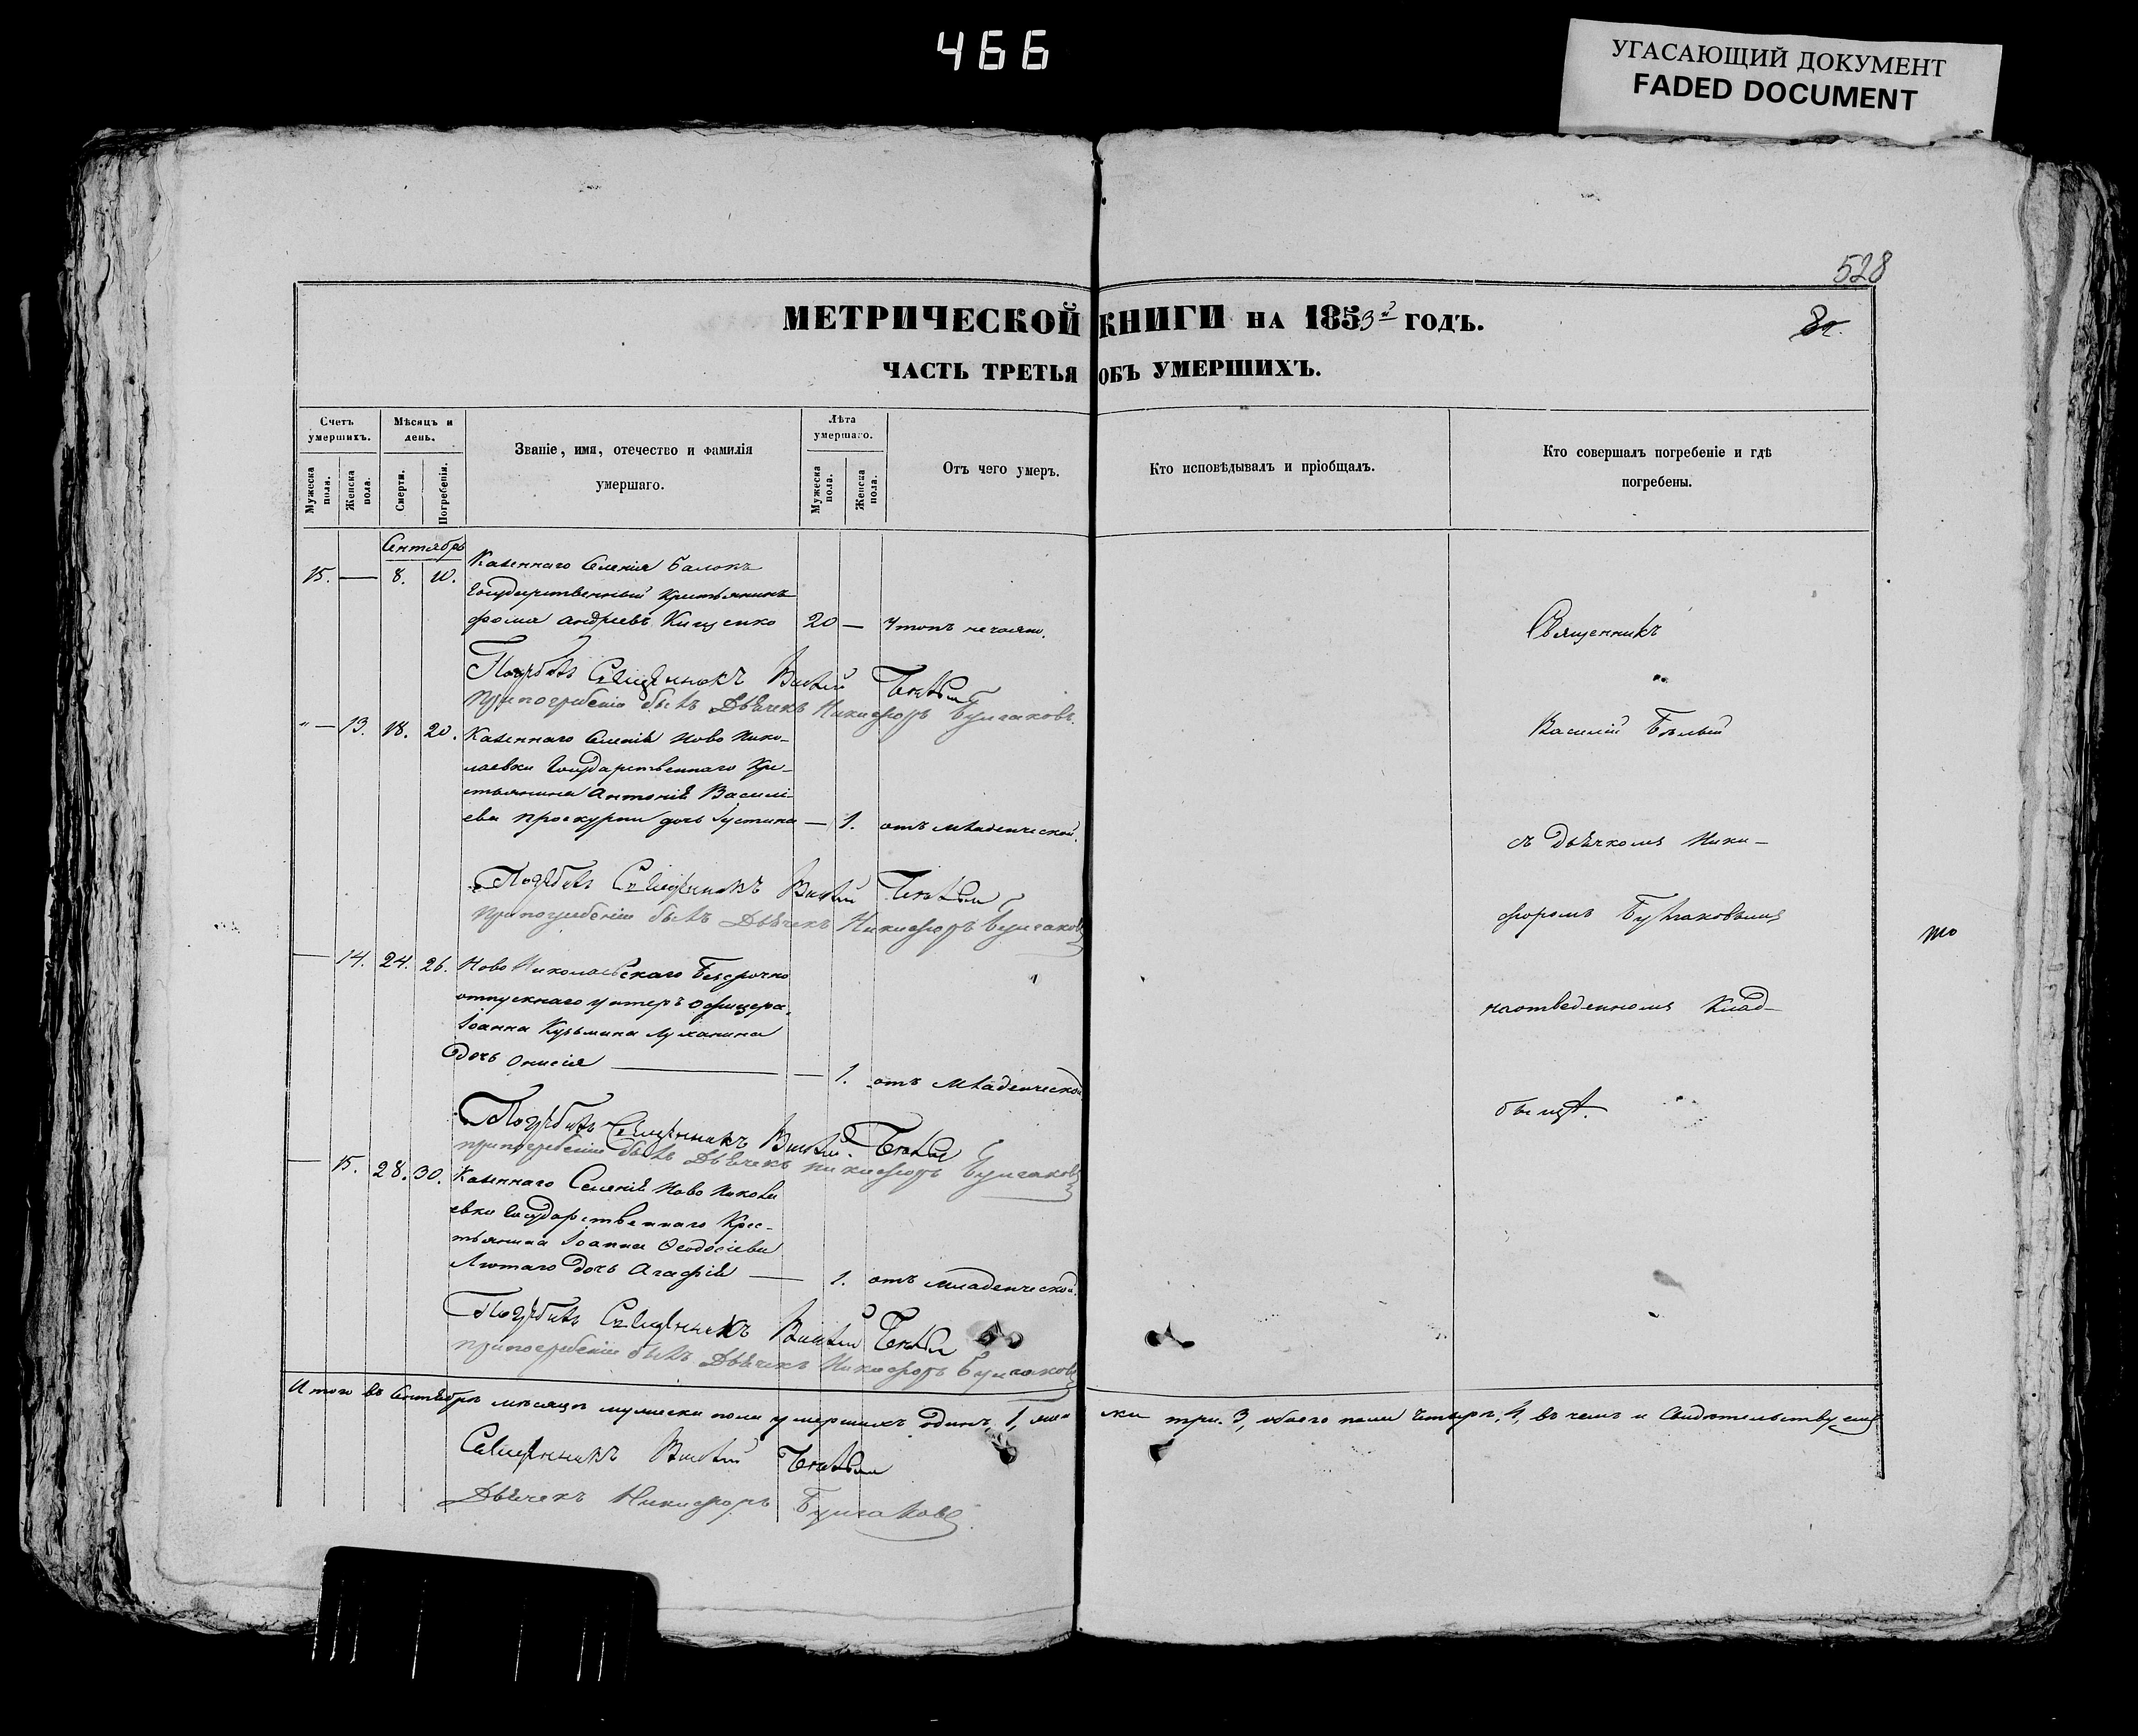 466
УГАСАЮЩИЙ ДОКУМЕНТ
FADED DOCUMENT
528
МЕТРИЧЕСКОЙ КНИГИ НА 1853й ГОДЪ.
ЧАСТЬ ТРЕТЬЯ ОБЪ УМЕРШИХЪ.
Счетъ умершихъ.
Мужеска пола.
Женска пола.
Мѣсяцъ и день.
Смерти.
Погребенія.
Званіе, имя, отечество и фамилія умершаго.
Лѣта умершаго.
Мужеска пола.
Женска пола.
Отъ чего умеръ.
Кто исповѣдывалъ и пріобщалъ.
Кто совершалъ погребеніе и гдѣ погребены.
Сентябрь
15. — 8. 10. Казеннаго Селенія Балокъ
Государственный Крестьянинъ
Фома Андреевъ Кищенко 20 —
Погребалъ Священникъ Василий Белый
При погребеніи былъ Дьячекъ Никифоръ Булгаковъ.
" — 13. 18. 20. Казеннаго Селенія Ново Нико-
лаевки Государственнаго Кре-
стьянина Антонія Василі-
ева дочь Іустина — 1. отъ младенческой.
Погребалъ Священникъ Василий Белый
При погребеніи былъ Дьячекъ Никифоръ Булгаковъ
— 14. 24. 26. Ново Николаевскаго Безсрочно
отпускнаго унтеръ офицера
Іоанна Кузьмина
дочь Онисія — 1. отъ младенческой
Погребалъ Священникъ Василий Белый
При погребеніи былъ Дьячекъ Никифоръ Булгаковъ
— 15. 28. 30. Казеннаго Селенія Ново Никола
евки Государственнаго Крес-
тьянина Іоанна Феодосіева
Лютаго дочь Агафія — 1. отъ младенческой.
Погребалъ Священникъ Василий Белый
При погребеніи былъ Дьячекъ Никифоръ Булгаковъ
Священникъ
Василій Бѣлый
съ Дьячкомъ Ники-
форомъ Булгаковымъ
на отведенномъ Клад-
бищѣ.
Итого въ Сентябрѣ мѣсяцѣ мужеска пола умершихъ одинъ, 1, женска три. 3, обоего пола четыре, 4, въ чемъ и Свидѣтельствуемъ
Священникъ Василий Белый
Дьячекъ Никифоръ Булгаковъ